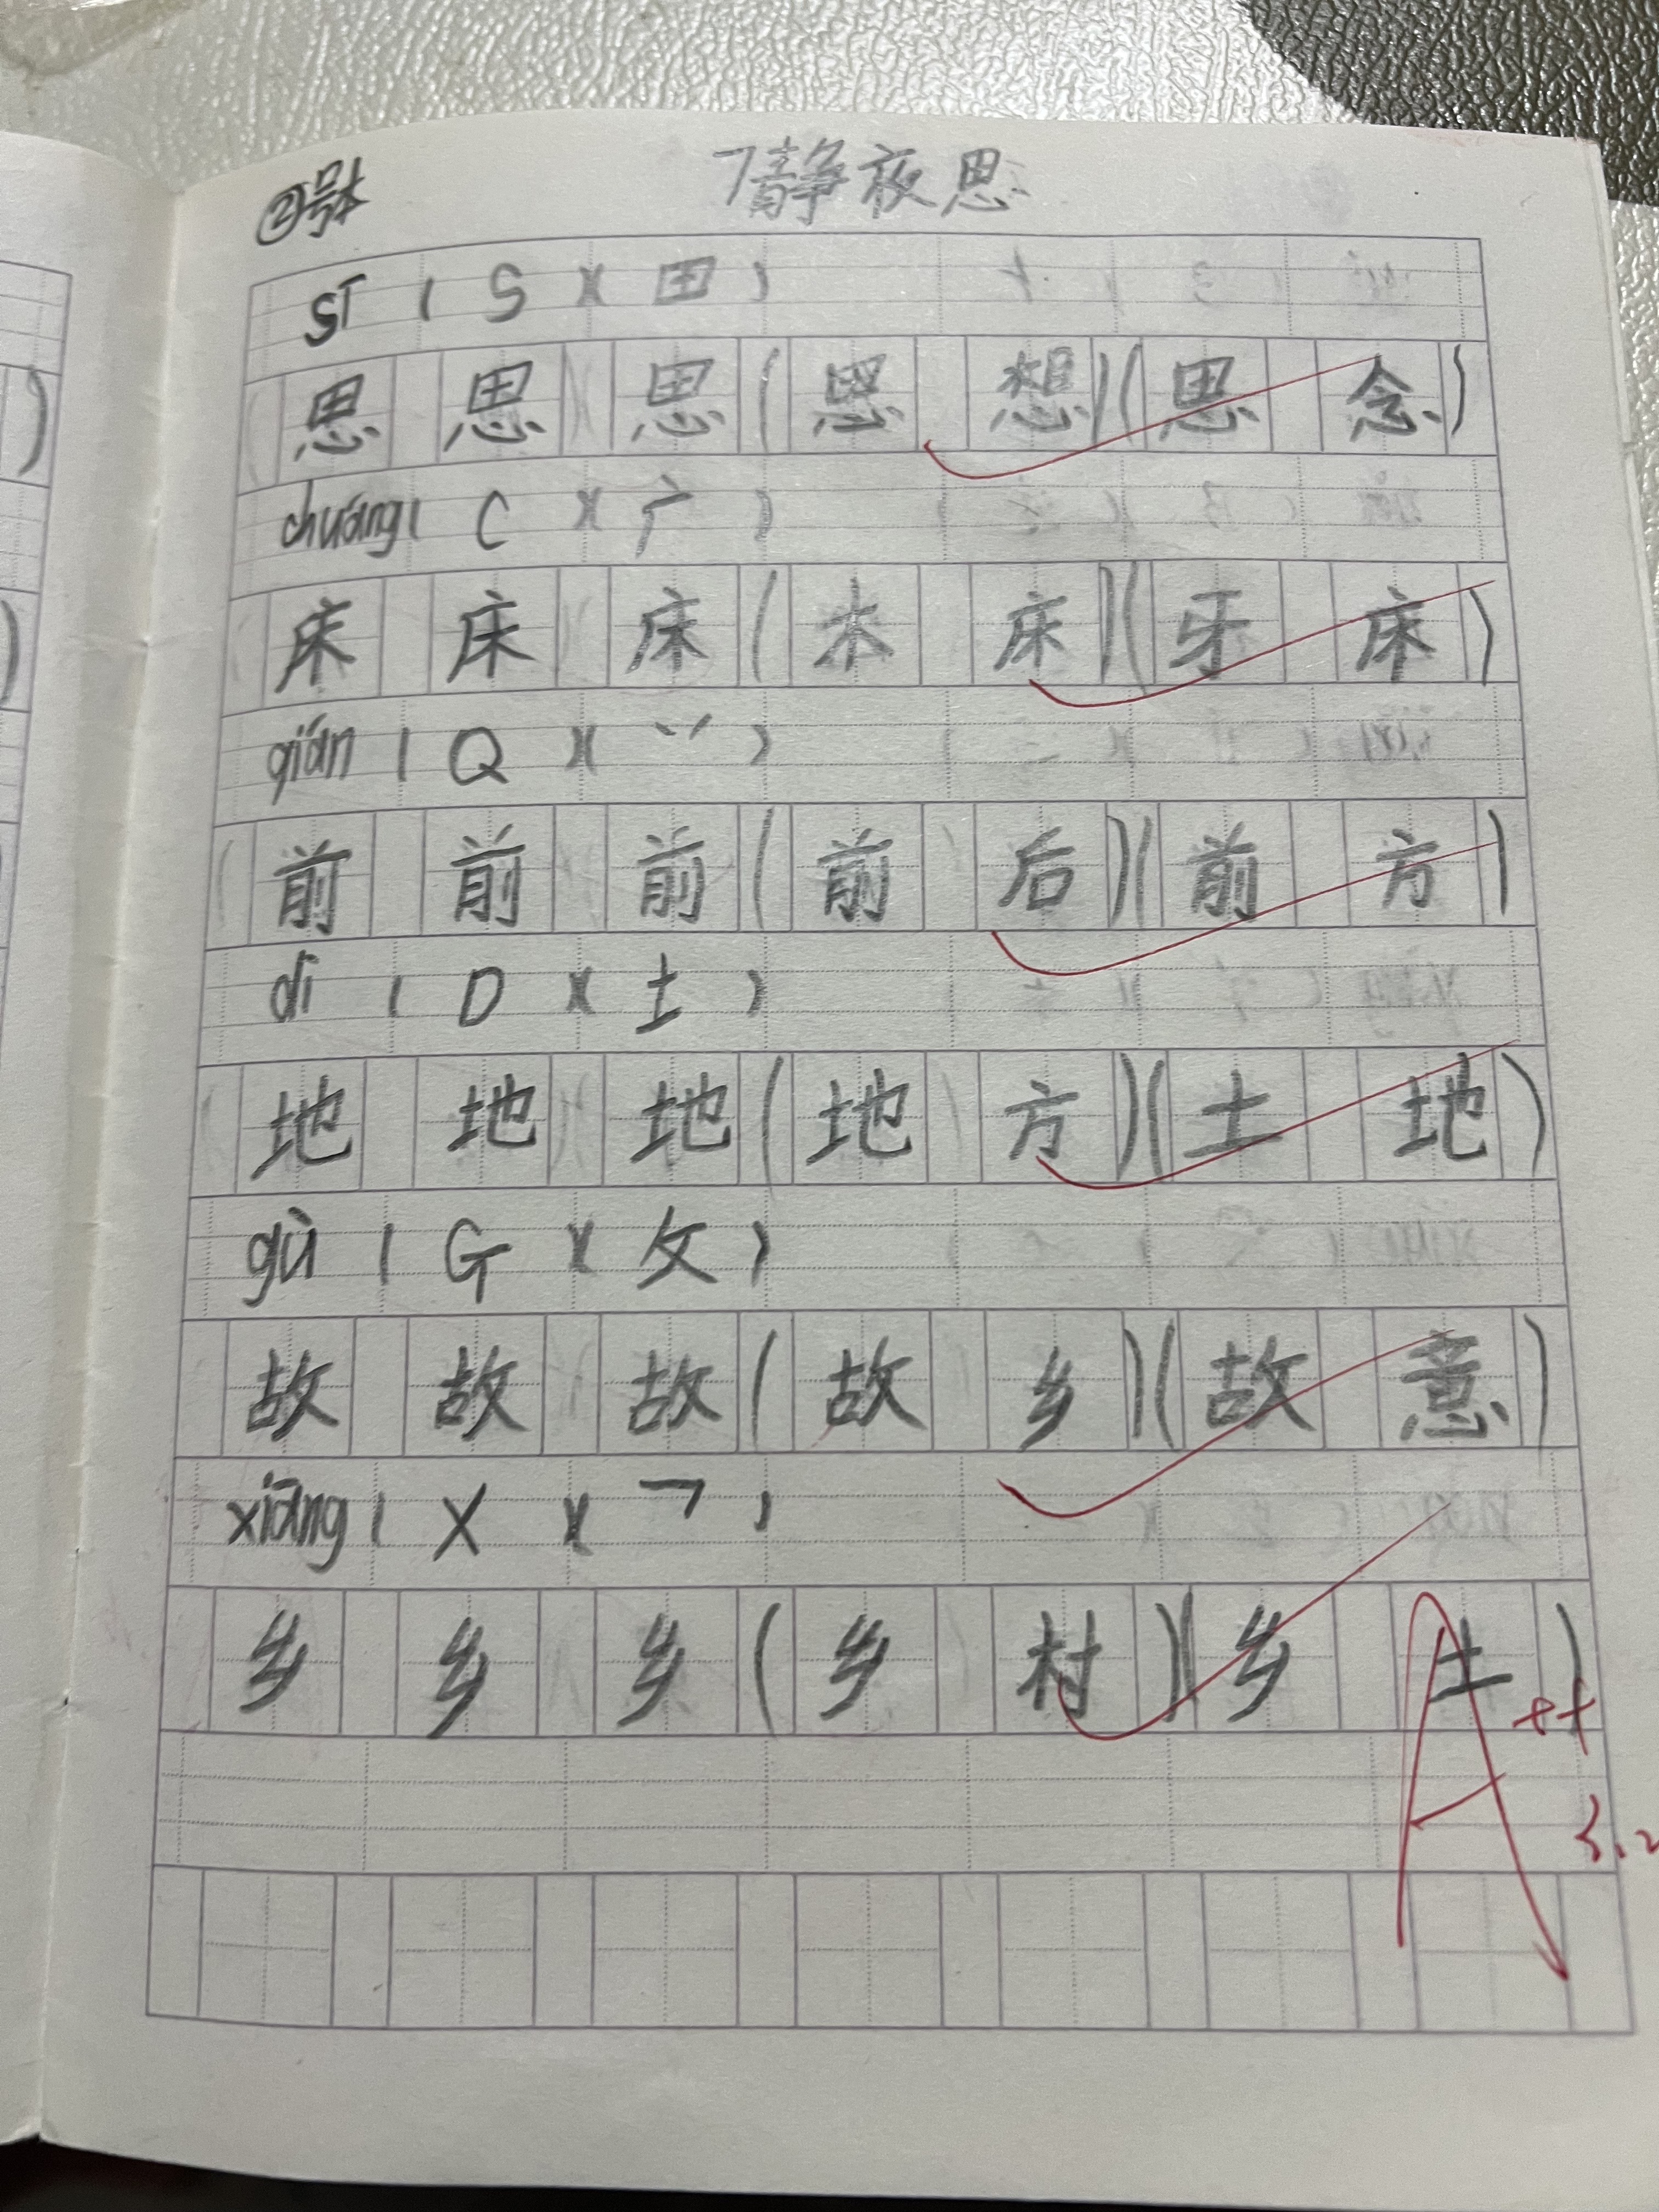 ②号本 7静夜思
sī ( S )( 田 )
思 思 思 ( 思 想 )( 思 念 )
chuáng ( C )( 广 )
床 床 床 ( 木 床 )( 牙 床 )
qián ( Q )( 丷 )
前 前 前 ( 前 后 )( 前 方 )
dì ( D )( 土 )
地 地 地 ( 地 方 )( 土 地 )
gù ( G )( 攵 )
故 故 故 ( 故 乡 )( 故 意 )
xiāng ( X )( ㇇ )
乡 乡 乡 ( 乡 村 )( 乡 土 )
A++